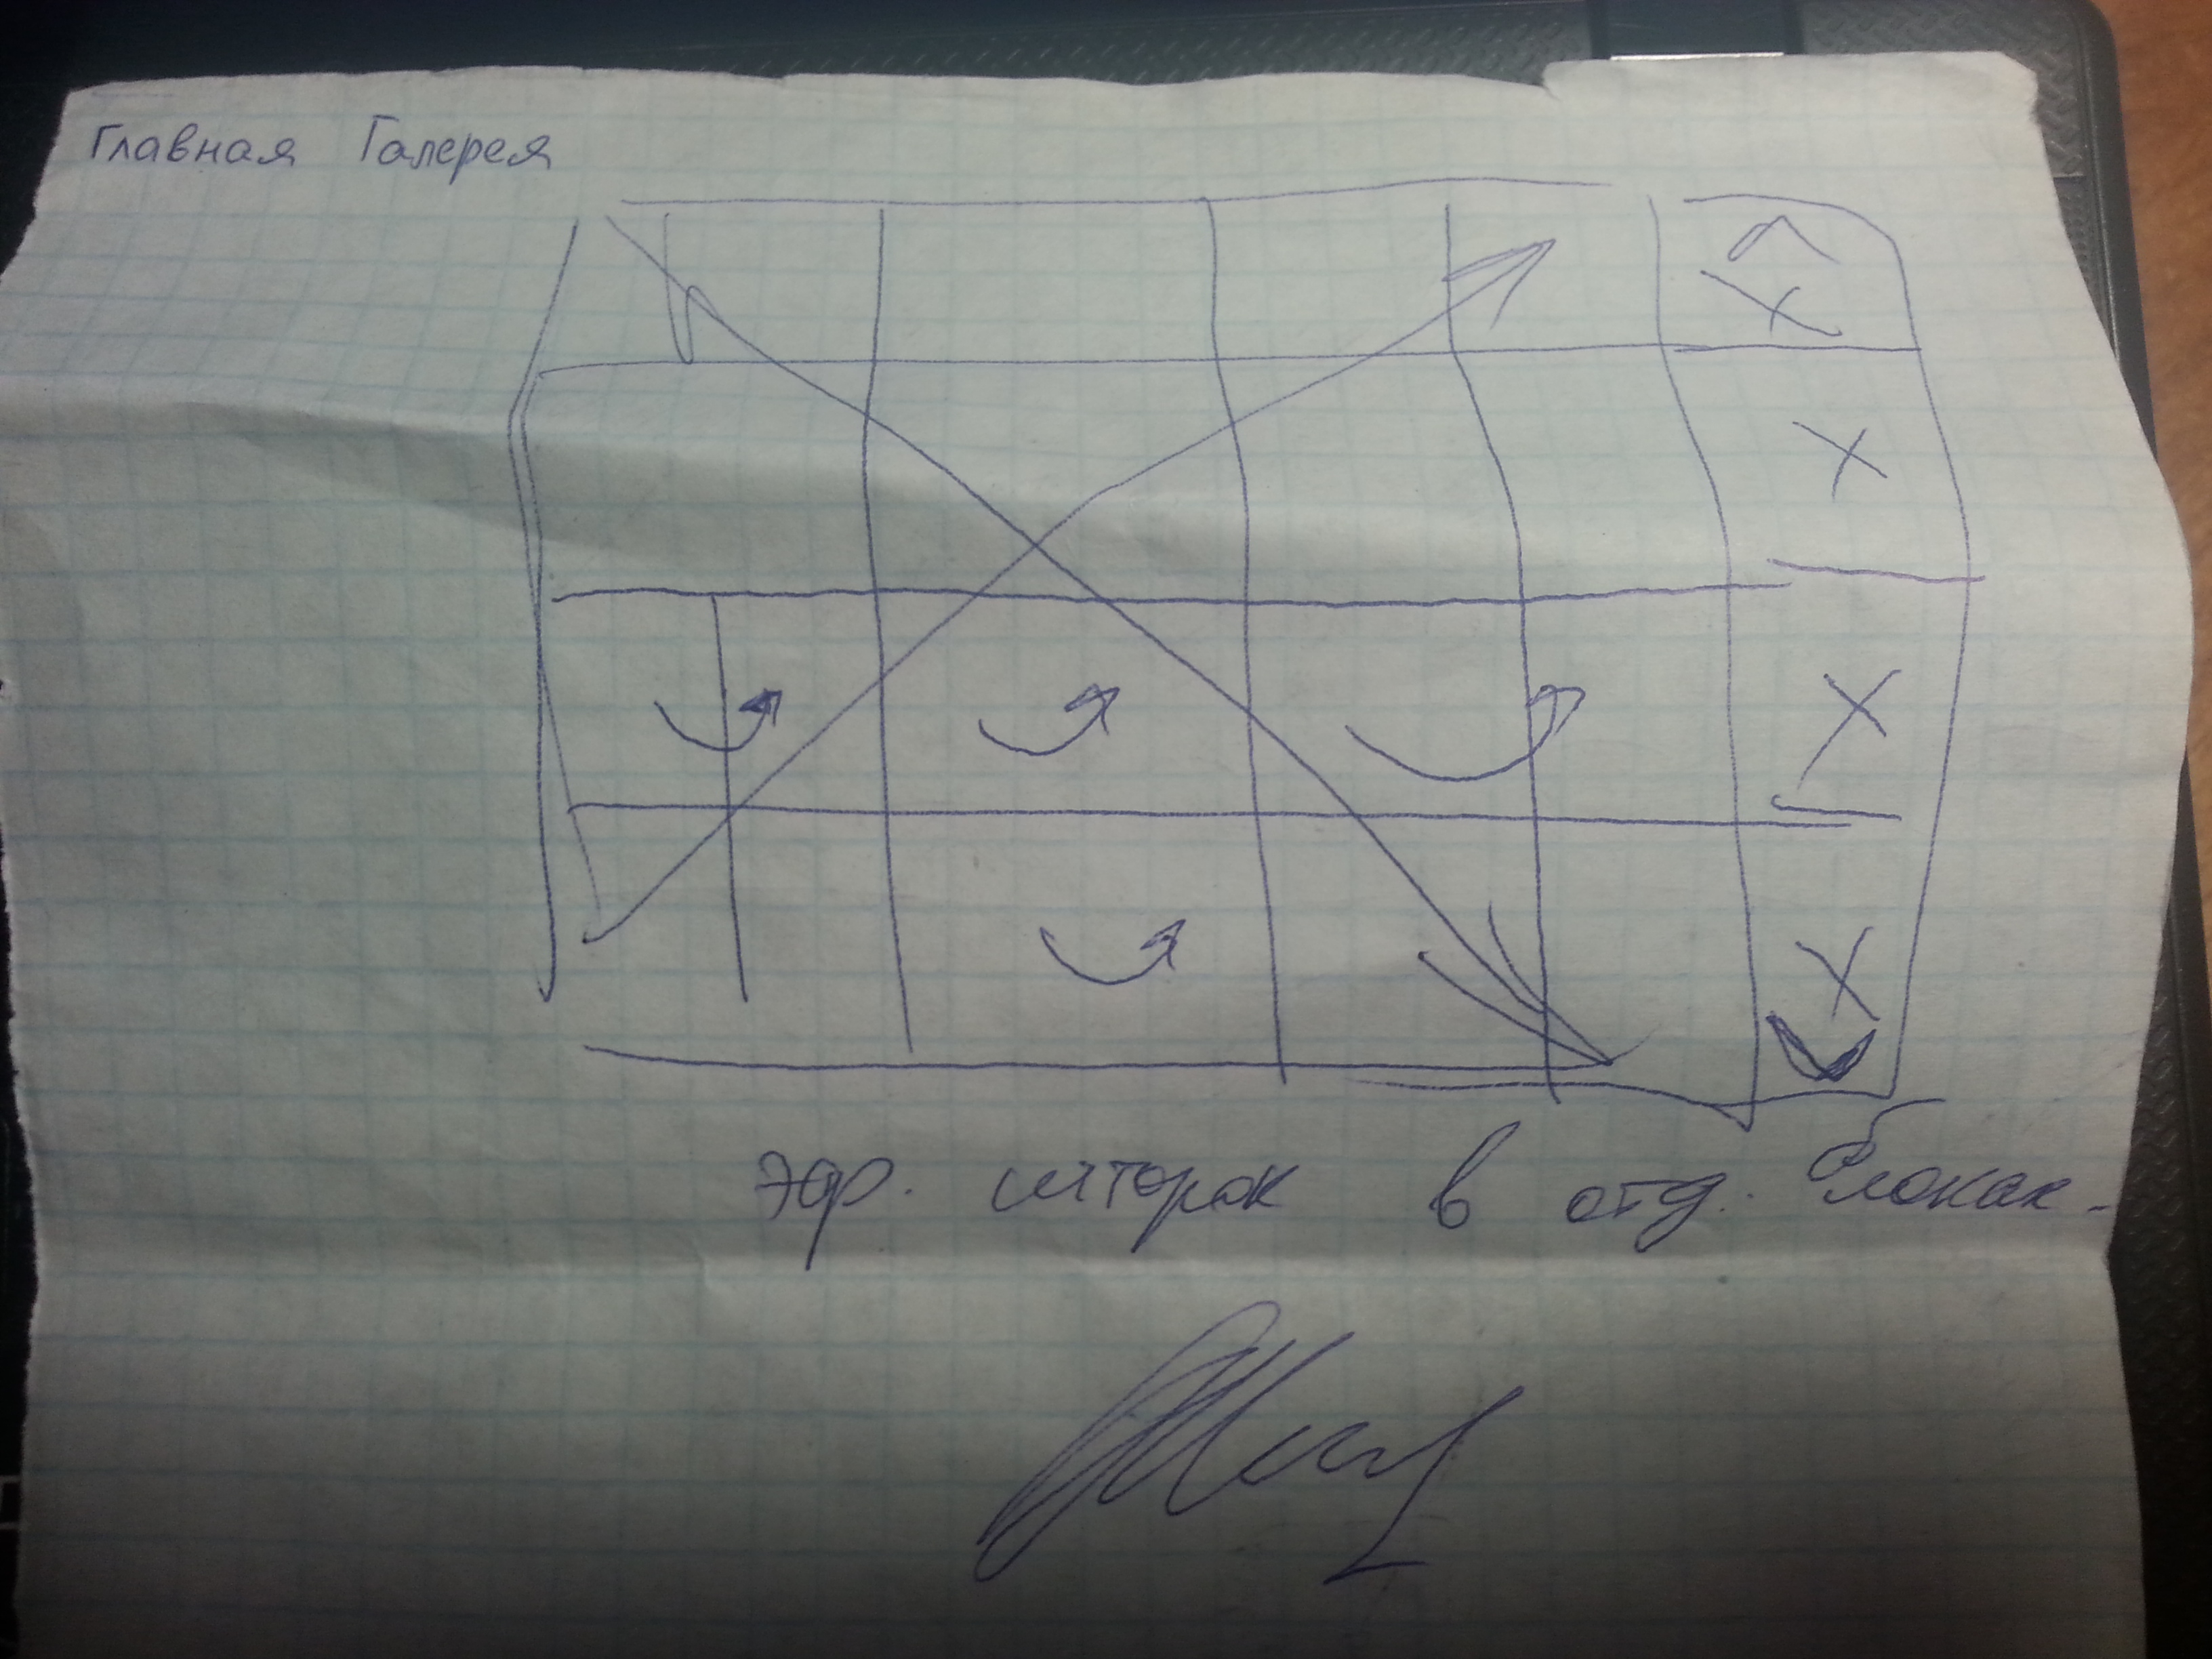 Главная Галерея
эфр. шторок в отд. блоках.